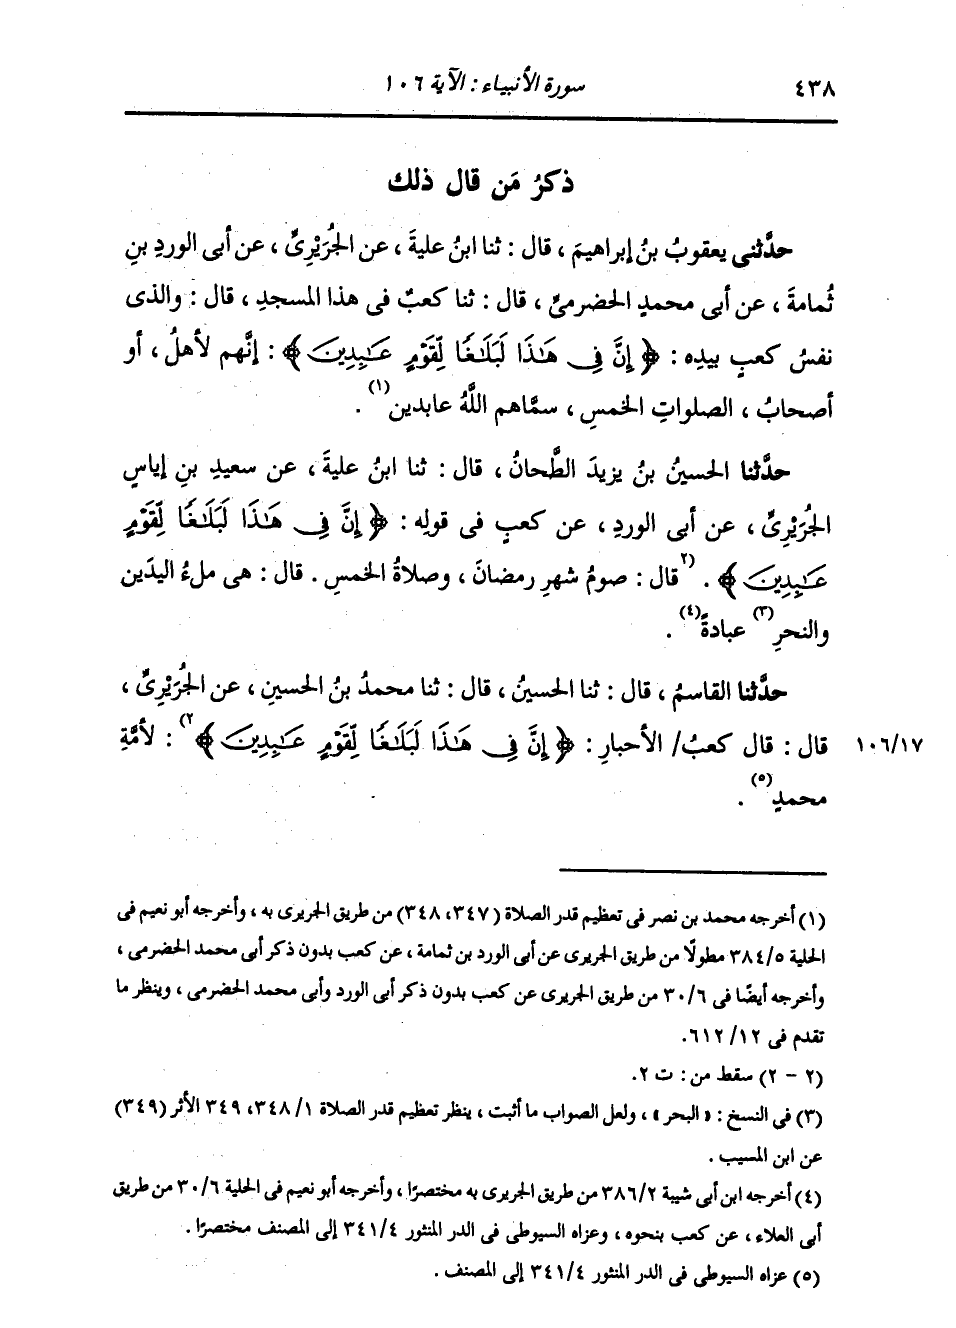 ٤٣٨
سورة الأنبياء : الآية ١٠٦
ذكرُ مَن قال ذلك
حدَّثنى يعقوبُ بنُ إبراهيمَ ، قال : ثنا ابنُ عليةَ ، عن الجُرَيْرِىِّ ، عن أبى الوردِ بنِ
ثُمامةَ ، عن أبى محمدٍ الحضرمىِّ ، قال : ثنا كعبٌ فى هذا المسجدِ ، قال : والذى
نفسُ كعبٍ بيدِه : ﴿ إِنَّ فِى هَٰذَا لَبَلَٰغًا لِّقَوْمٍ عَٰبِدِينَ ﴾ : إنَّهم لأهلُ ، أو
أصحابُ ، الصلواتِ الخمسِ ، سمَّاهم اللَّهُ عابدين(١) .
حدَّثنا الحسينُ بنُ يزيدَ الطَّحانُ ، قال : ثنا ابنُ عليةَ ، عن سعيدِ بنِ إياسٍ
الجُرَيْرِىِّ ، عن أبى الوردِ ، عن كعبٍ فى قولِه : ﴿ إِنَّ فِى هَٰذَا لَبَلَٰغًا لِّقَوْمٍ
عَٰبِدِينَ ﴾ . (٢قال : صومُ شهرِ رمضانَ ، وصلاةُ الخمسِ . قال : هى ملءُ اليدَين
والنحرِ(٣) عبادةً(٤) .
حدَّثنا القاسمُ ، قال : ثنا الحسينُ ، قال : ثنا محمدُ بنُ الحسينِ ، عن الجُرَيْرِىِّ ،
١٠٦/١٧ قال : قال كعبُ/ الأحبارِ : ﴿ إِنَّ فِى هَٰذَا لَبَلَٰغًا لِّقَوْمٍ عَٰبِدِينَ ﴾٢) : لأمَّةِ
محمدٍ(٥) .
(١) أخرجه محمد بن نصر فى تعظيم قدر الصلاة (٣٤٧، ٣٤٨) من طريق الجريرى به ، وأخرجه أبو نعيم فى
الحلية ٣٨٤/٥ مطولًا من طريق الجريرى عن أبى الورد بن ثمامة ، عن كعب بدون ذكر أبى محمد الحضرمى ،
وأخرجه أيضًا فى ٣٠/٦ من طريق الجريرى عن كعب بدون ذكر أبى الورد وأبى محمد الحضرمى ، وينظر ما
تقدم فى ١٢/ ٦١٢.
(٢ - ٢) سقط من : ت ٢.
(٣) فى النسخ : « البحر » ، ولعل الصواب ما أثبت ، ينظر تعظيم قدر الصلاة ١/ ٣٤٨، ٣٤٩ الأثر (٣٤٩)
عن ابن المسيب .
(٤) أخرجه ابن أبى شيبة ٣٨٦/٢ من طريق الجريرى به مختصرًا ، وأخرجه أبو نعيم فى الحلية ٣٠/٦ من طريق
أبى العلاء ، عن كعب بنحوه ، وعزاه السيوطى فى الدر المنثور ٣٤١/٤ إلى المصنف مختصرًا .
(٥) عزاه السيوطى فى الدر المنثور ٣٤١/٤ إلى المصنف .